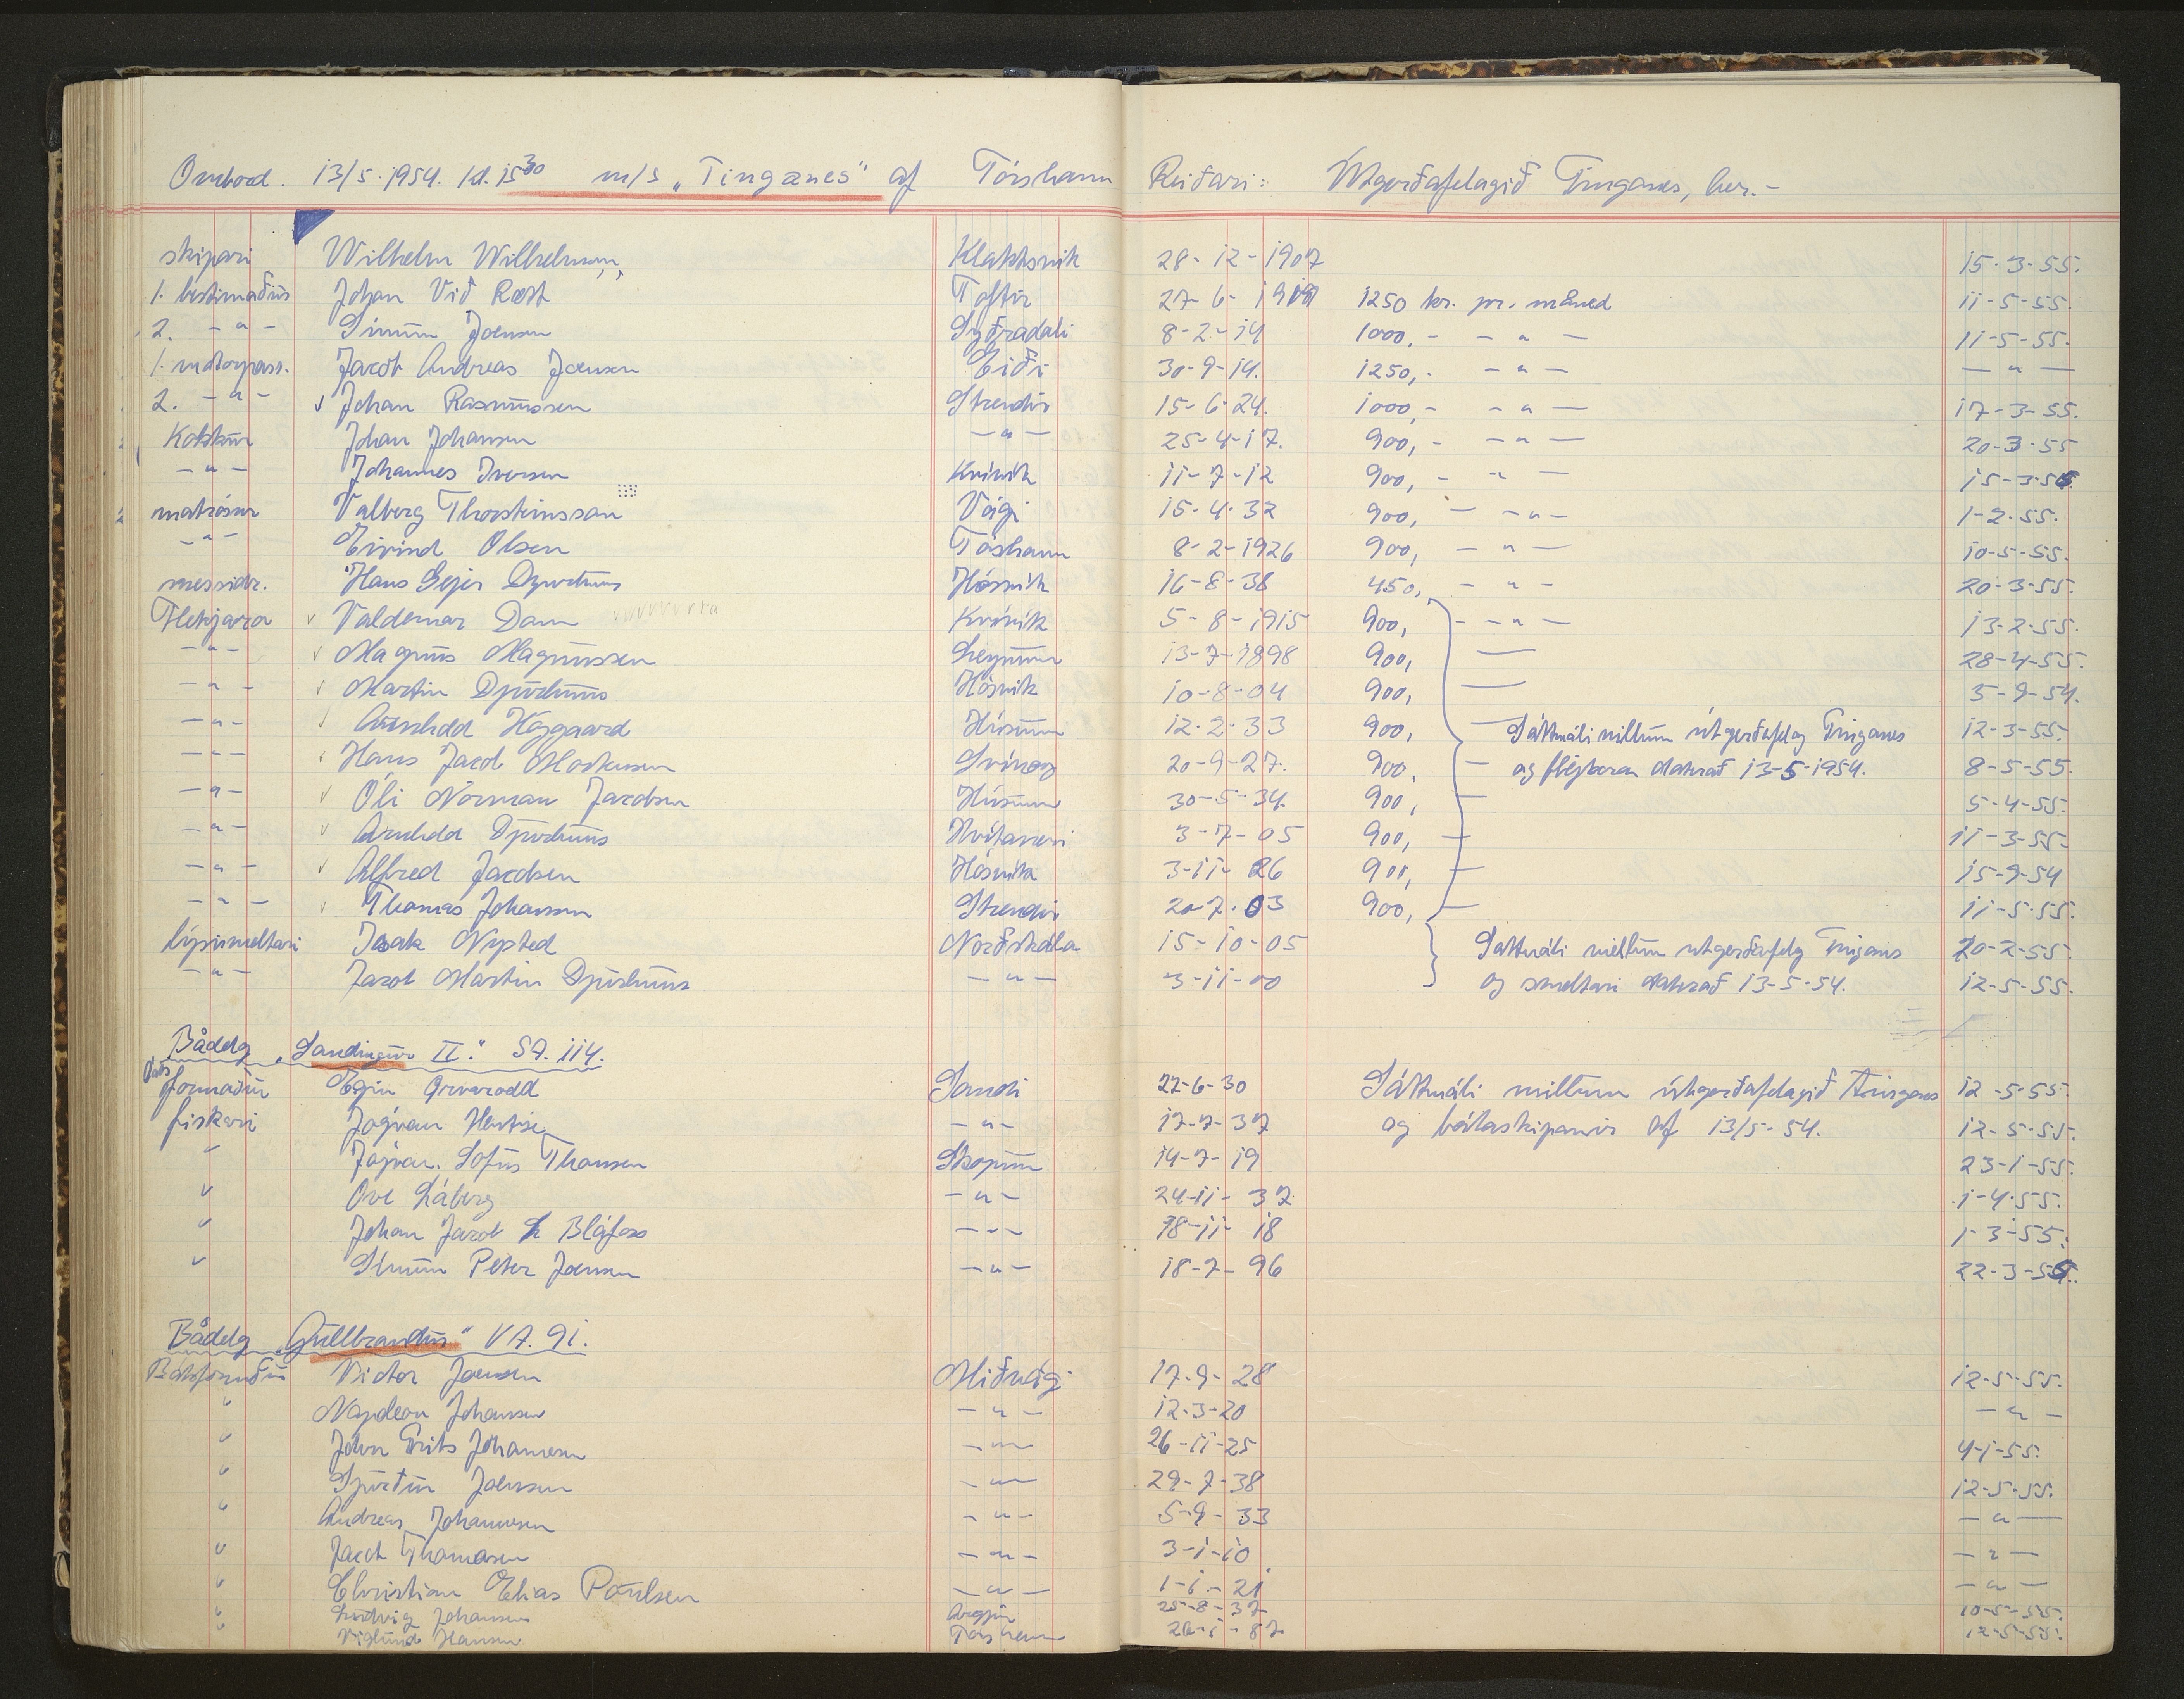 Ombord. 13/5. 1954. kl. 15³⁰ m/s "Tinganes" af Tórshavn Reiðari: Útgerðafelagið Tinganes, her.-
skipari Wilhelm Wilhelmsen Klakksvik 28-12-1907 15-3-55.
1. bestimaður Johan Við Røst Toftir 27-6-1919 1250 kr. pr. måned 11-5-55.
2. -"- Símun Joensen Syðradali 8-2-14 1000,- -"- 11-5-55.
1. motorpass. Jacob Andreas Joensen Eiði 30-9-14. 1250,- -"- -"-
2. -"- Johan Rasmussen Strendir 15-6-24. 1000,- -"- 17-3-55.
Kokkur Johan Johansen -"- 25-4-17. 900,- -"- 20-3-55
-"- Johannes Iversen Kvívík 11-7-12 900,- -"-
matrósur Valberg Thorsteinsson Vági 15-4-32 900, -"- 1-2-55.
-"- Eivind Olsen Tóshavn 8-2-1926 900, -"- 10-5-55.
messidr. Hans Gejer Djurhuus Hósvik 16-8-38 450, -"- 20-3-55.
Flekjara Valdemar Dam Kvívík 5-8-1915 900, -"- 13-2-55.
-"- Magnus Magnussen Leynum 13-7-1898 900, 28-4-55.
-"- Martin Djurhuus Hósvik 10-8-04 900, 3-9-54.
-"- Arnhold Høgaard Húsum 12-2-33 900, Sáttmáli millum útgerðafelag Tinganes 12-3-55.
-"- Hans Jacob Markussen Svínoy 20-9-27. 900, og flekjaran daterað 13-5-1954. 8-5-55.
-"- Óli Norman Jacobsen Húsum 30-5-34. 900, 5-4-55.
-"- Arnhold Djurhuus Hvítanesi 3-7-05 900, 11-3-55.
-"- Alfred Jacobsen Hósvik 3-11-26 900, 15-9-54
-"- Thomas Johansen Strendir 20-7-03 900, 11-5-55.
lýsismeltari Isak Nysted Norðskála 15-10-05 Sáttmáli millum útgerðafelag Tinganes 20-2-55.
-"- Jacob Martin Djurhuus -"- 3-11-00 og smeltari daterað 13-5-54. 12-5-55.
Bådelg "Sandingur II." SA. 114.
Báts formaður Egin Ørvarodd Sandi 22-6-30 Sáttmáli millum útgerðafelagið Tinganes 12-5-55.
fiskari Jógvan Hentze -"- 17-7-37 og bátaskiparar af 13/5-54. 12-5-55.
" Jógvan Sofus Thomsen Skopun 14-7-19 23-1-55.
" Ove Láberg -"- 24-11-37. 1-4-55.
" Johan Jacob Bláfoss -"- 18-11-18 1-3-55.
" Símun Peter Joensen -"- 18-7-96
Bådelg "Gullbrandur" VA. 91.
Bátsformaður Victor Joensen Miðvági 17-9-28 12-5-55.
" Napoleon Johansen -"- 12-3-20 -"-
" John Frits Johannesen -"- 26-11-25 4-1-55.
" Sjúrður Joensen -"- 29-7-38 12-5-55.
" Andreas Johannesen -"- 5-9-33 -"-
" Jacob Thomasen -"- 3-1-10 -"-
" Christian Elias Poulsen -"- 1-1-21 -"-
" Ludvig Johansen Argjir 25-8-37 10-5-55.
" Viglund Hansen Tórshavn 20-1-87. 12-5-55.